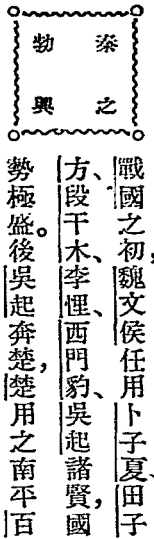 秦之
勃興
戰國之初,魏文侯任用卜子夏、田子
方、段干木、李悝、西門豹、吳起諸賢,國
勢極盛。後吳起奔楚,楚用之南平百